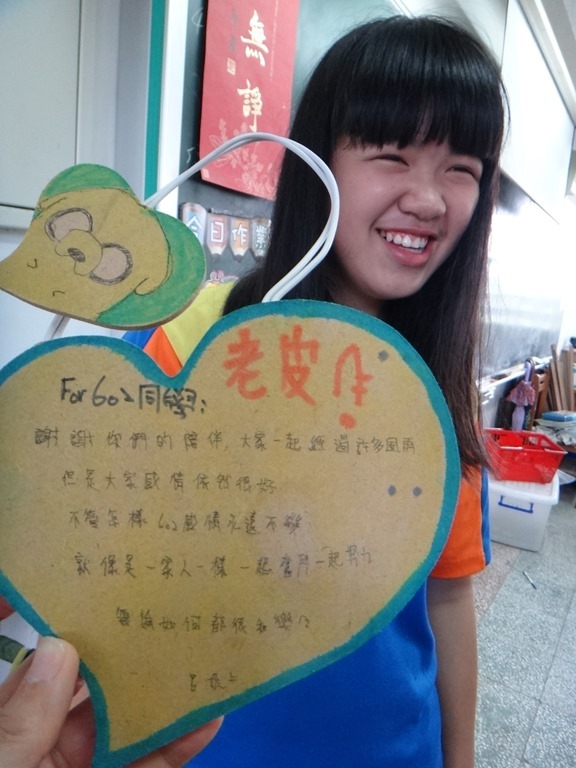 無諍
今日作業
老皮！
For 602同學:
謝謝你們的陪伴,大家一起經過許多風雨
但是大家感情依然很好
不管怎樣602感情永遠不變
就像是一家人一樣一起奮鬥一起努力
無論如何都很和樂